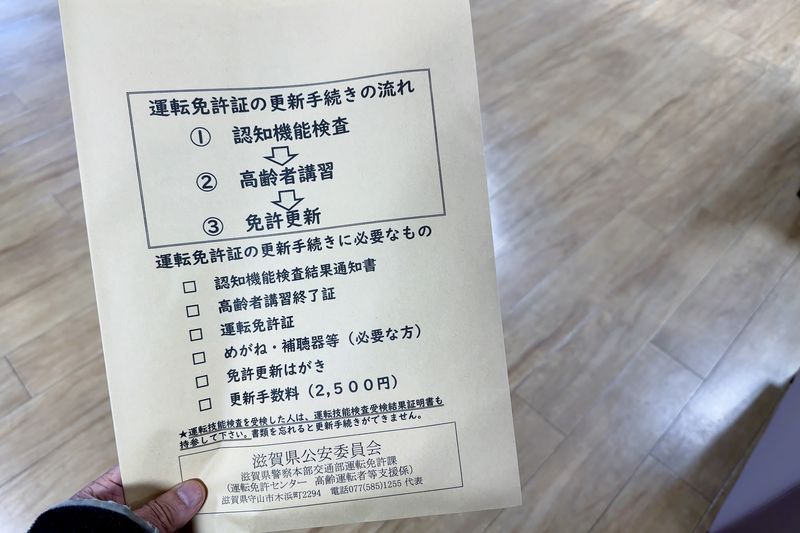 運転免許証の更新手続きの流れ
① 認知機能検査
② 高齢者講習
③ 免許更新
運転免許証の更新手続きに必要なもの
□ 認知機能検査結果通知書
□ 高齢者講習終了証
□ 運転免許証
□ めがね・補聴器等（必要な方）
□ 免許更新はがき
□ 更新手数料（2,500円）
★運転技能検査を受検した人は、運転技能検査受検結果証明書も
持参して下さい。書類を忘れると更新手続きができません。
滋賀県公安委員会
滋賀県警察本部交通部運転免許課
（運転免許センター 高齢運転者等支援係）
滋賀県守山市木浜町2294 電話077(585)1255 代表